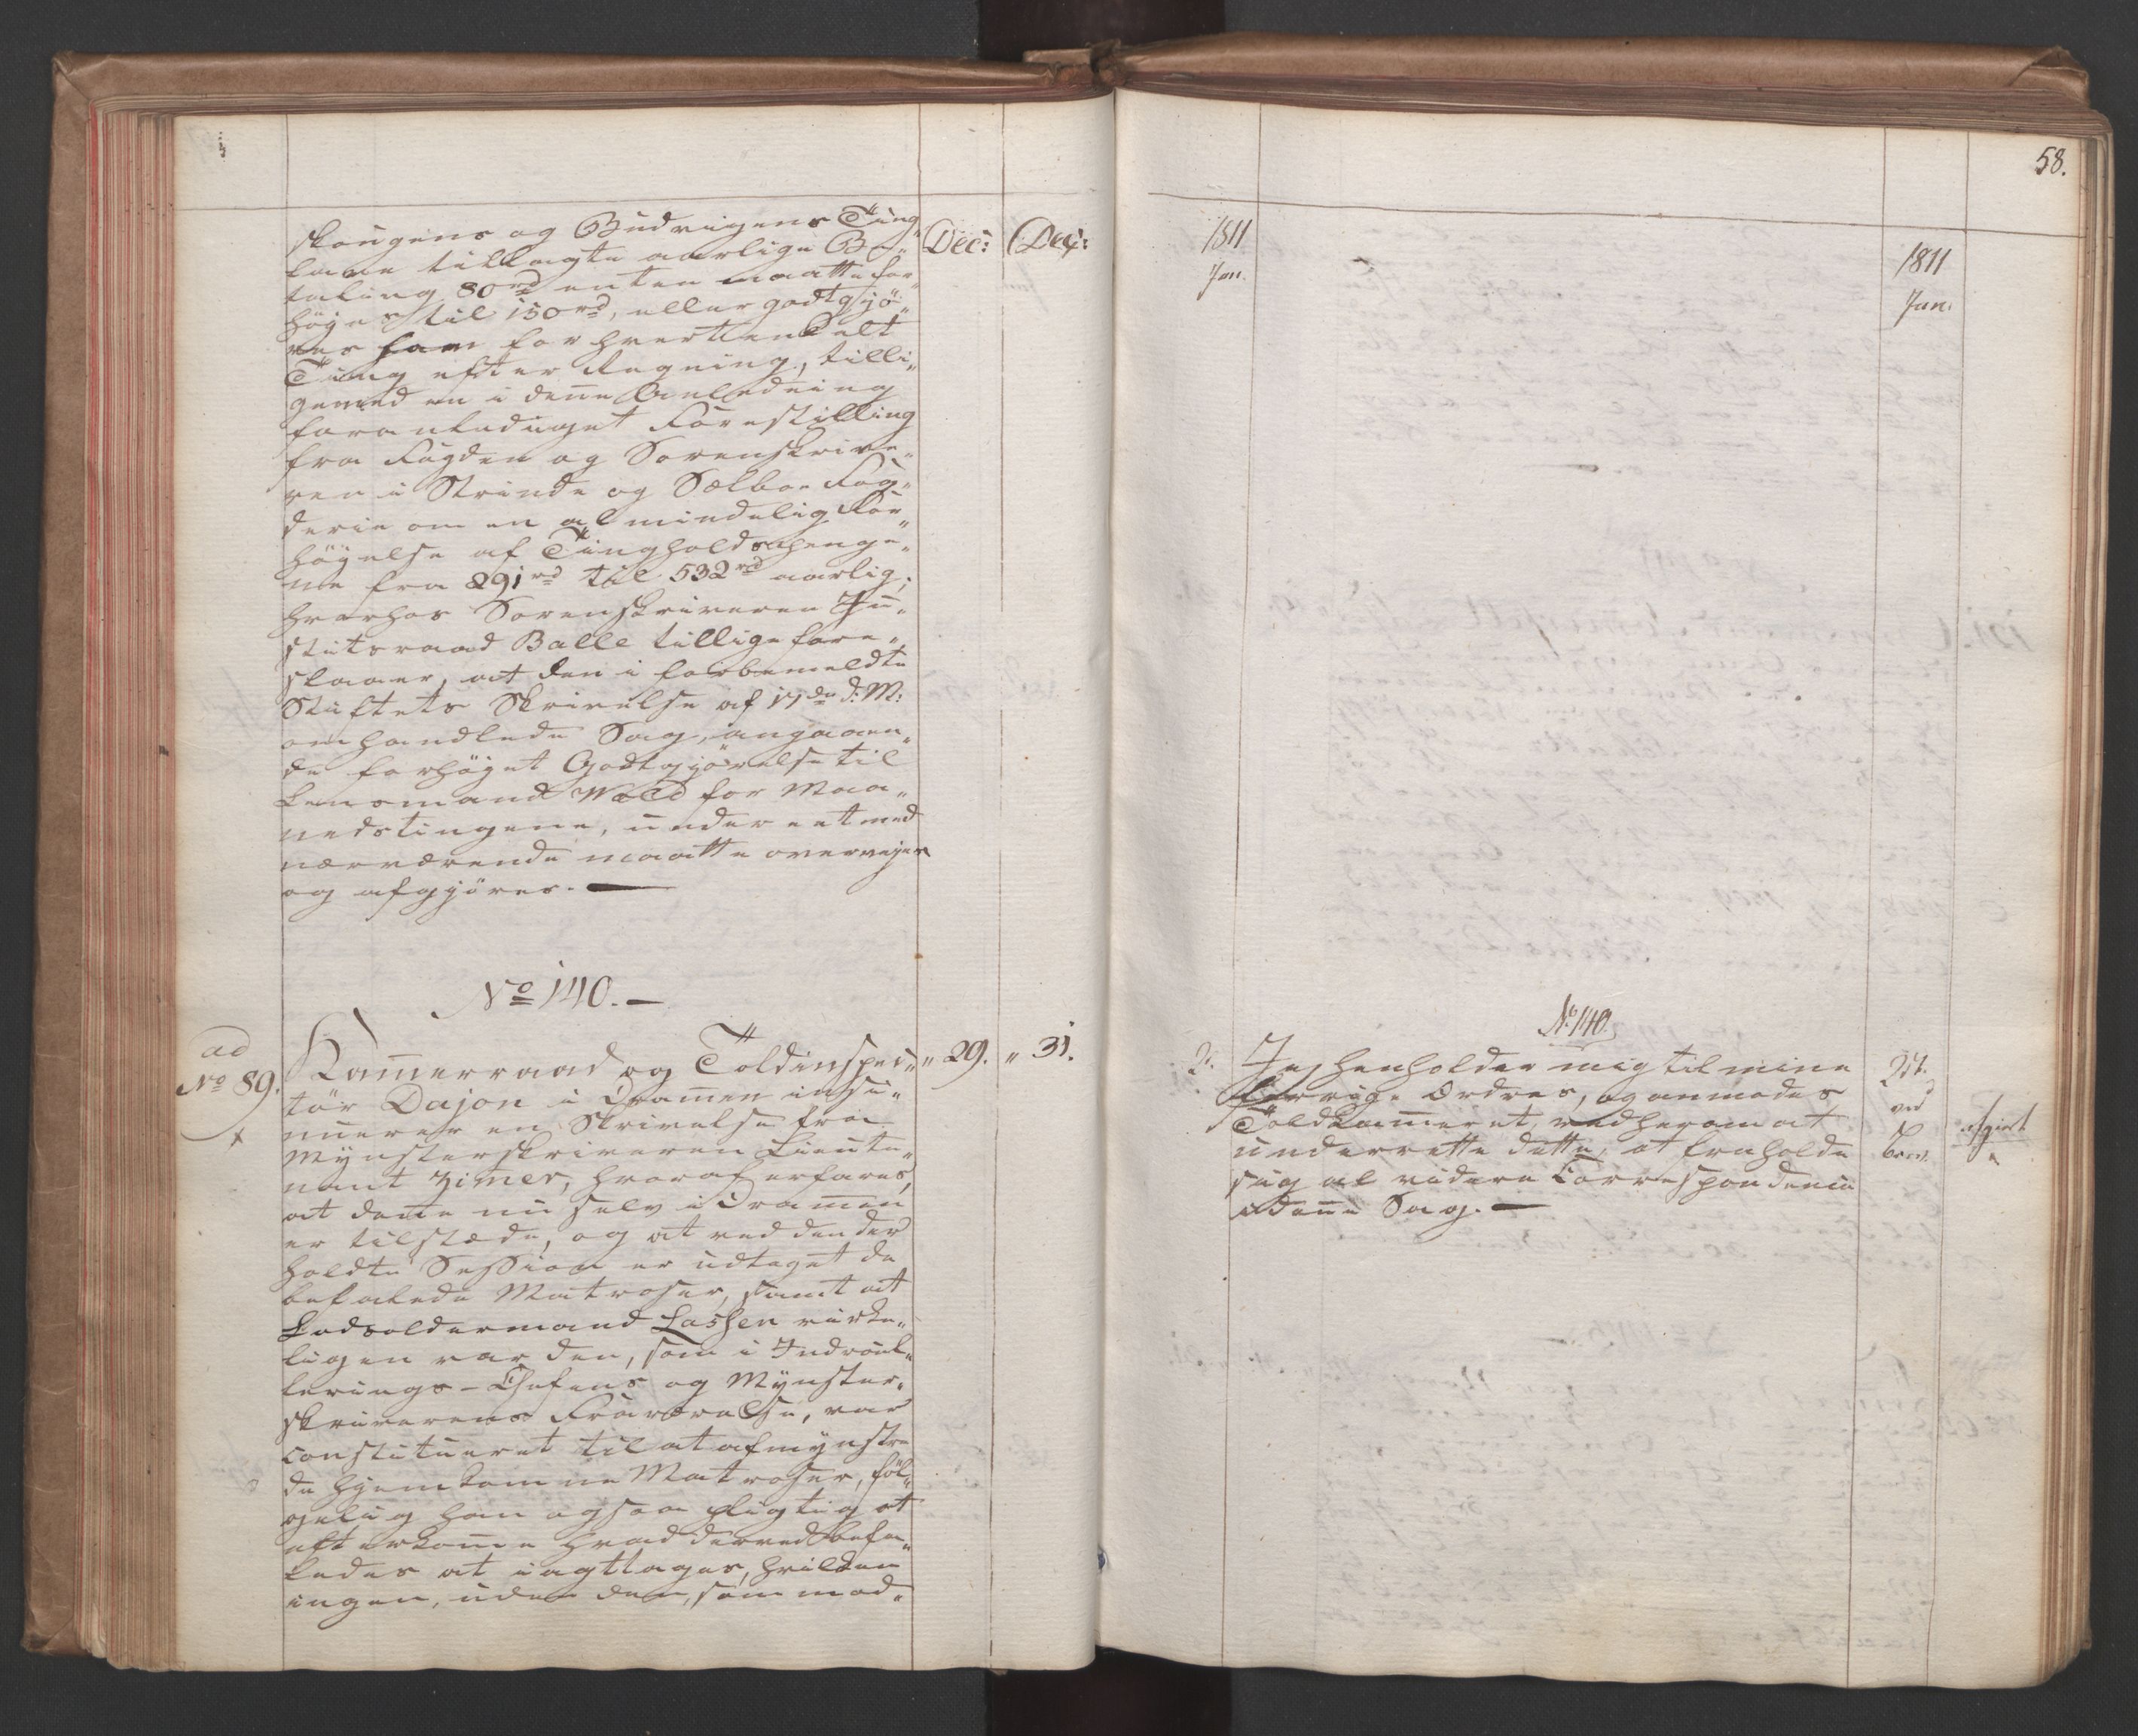 skougens og Budvigens Ting„
lave tillagte aarlige Be„
taling 80rd enten maatte for„
höyes til 150rd, eller godtgjö„
res ham for hvert enkelt
Ting efter Regning, tilli„
gemed en i denne Anledning
foranlediget Forestilling
fra Fogden og Sorenskrive„
ren i Strinde og Sælboe Fog„
derie om en almindelig For„
höyelse af Tingholdspenge„
ne fra 291rd til 532rd aarlig;
hvorhos Sorenskriveren Ju„
stitsraad Balle tillige fore„
slaaer, at den i forbemeldte
Stiftets Skrivelse af 17de d: M:
omhandlede Sag, angaaen„
de forhöyet Godtgjörelse til
Lensmand Wold for Maa„
nedstingene, under eet med
nærværende maatte overvejes
og afgjöres. —
Dec: Dec:
No 140. —
ad
No 89.
Kammerraad og Toldinspec„ „ 29. „ 31.
tör Dajon i Drammen insi„
nuerer en Skrivelse fra
Mynsterskriveren Lieute„
nant Zimer, hvoraf erfares,
at denne nu selv i Drammen
er tilstede, og at ved den der
holdte Session er udtaget de
befalede Matroser, samt at
Lodsoldermand Lassen virke„
ligen var den, som i Indroul„
lerings-Chefens og Mynster„
skriverens Fraværelse, var
constitueret til at afmynstre
de hjemkomne Matroser, föl„
gelig han ogsaa pligtig at
efterkomme hvad derved befa„
ledes at iagttages, hvilken
ingen, uden den, som mod„
58.
1811
Jan.
1811
Jan.
No 140.
2. Jeg henholder mig til mine
forrige Ordres, og anmodes
Toldkammeret, ved herom at
underrette dette, at fraholde
sig al videre Correspondence
i denne Sag. —
24.
ved
Brev.
afgjort